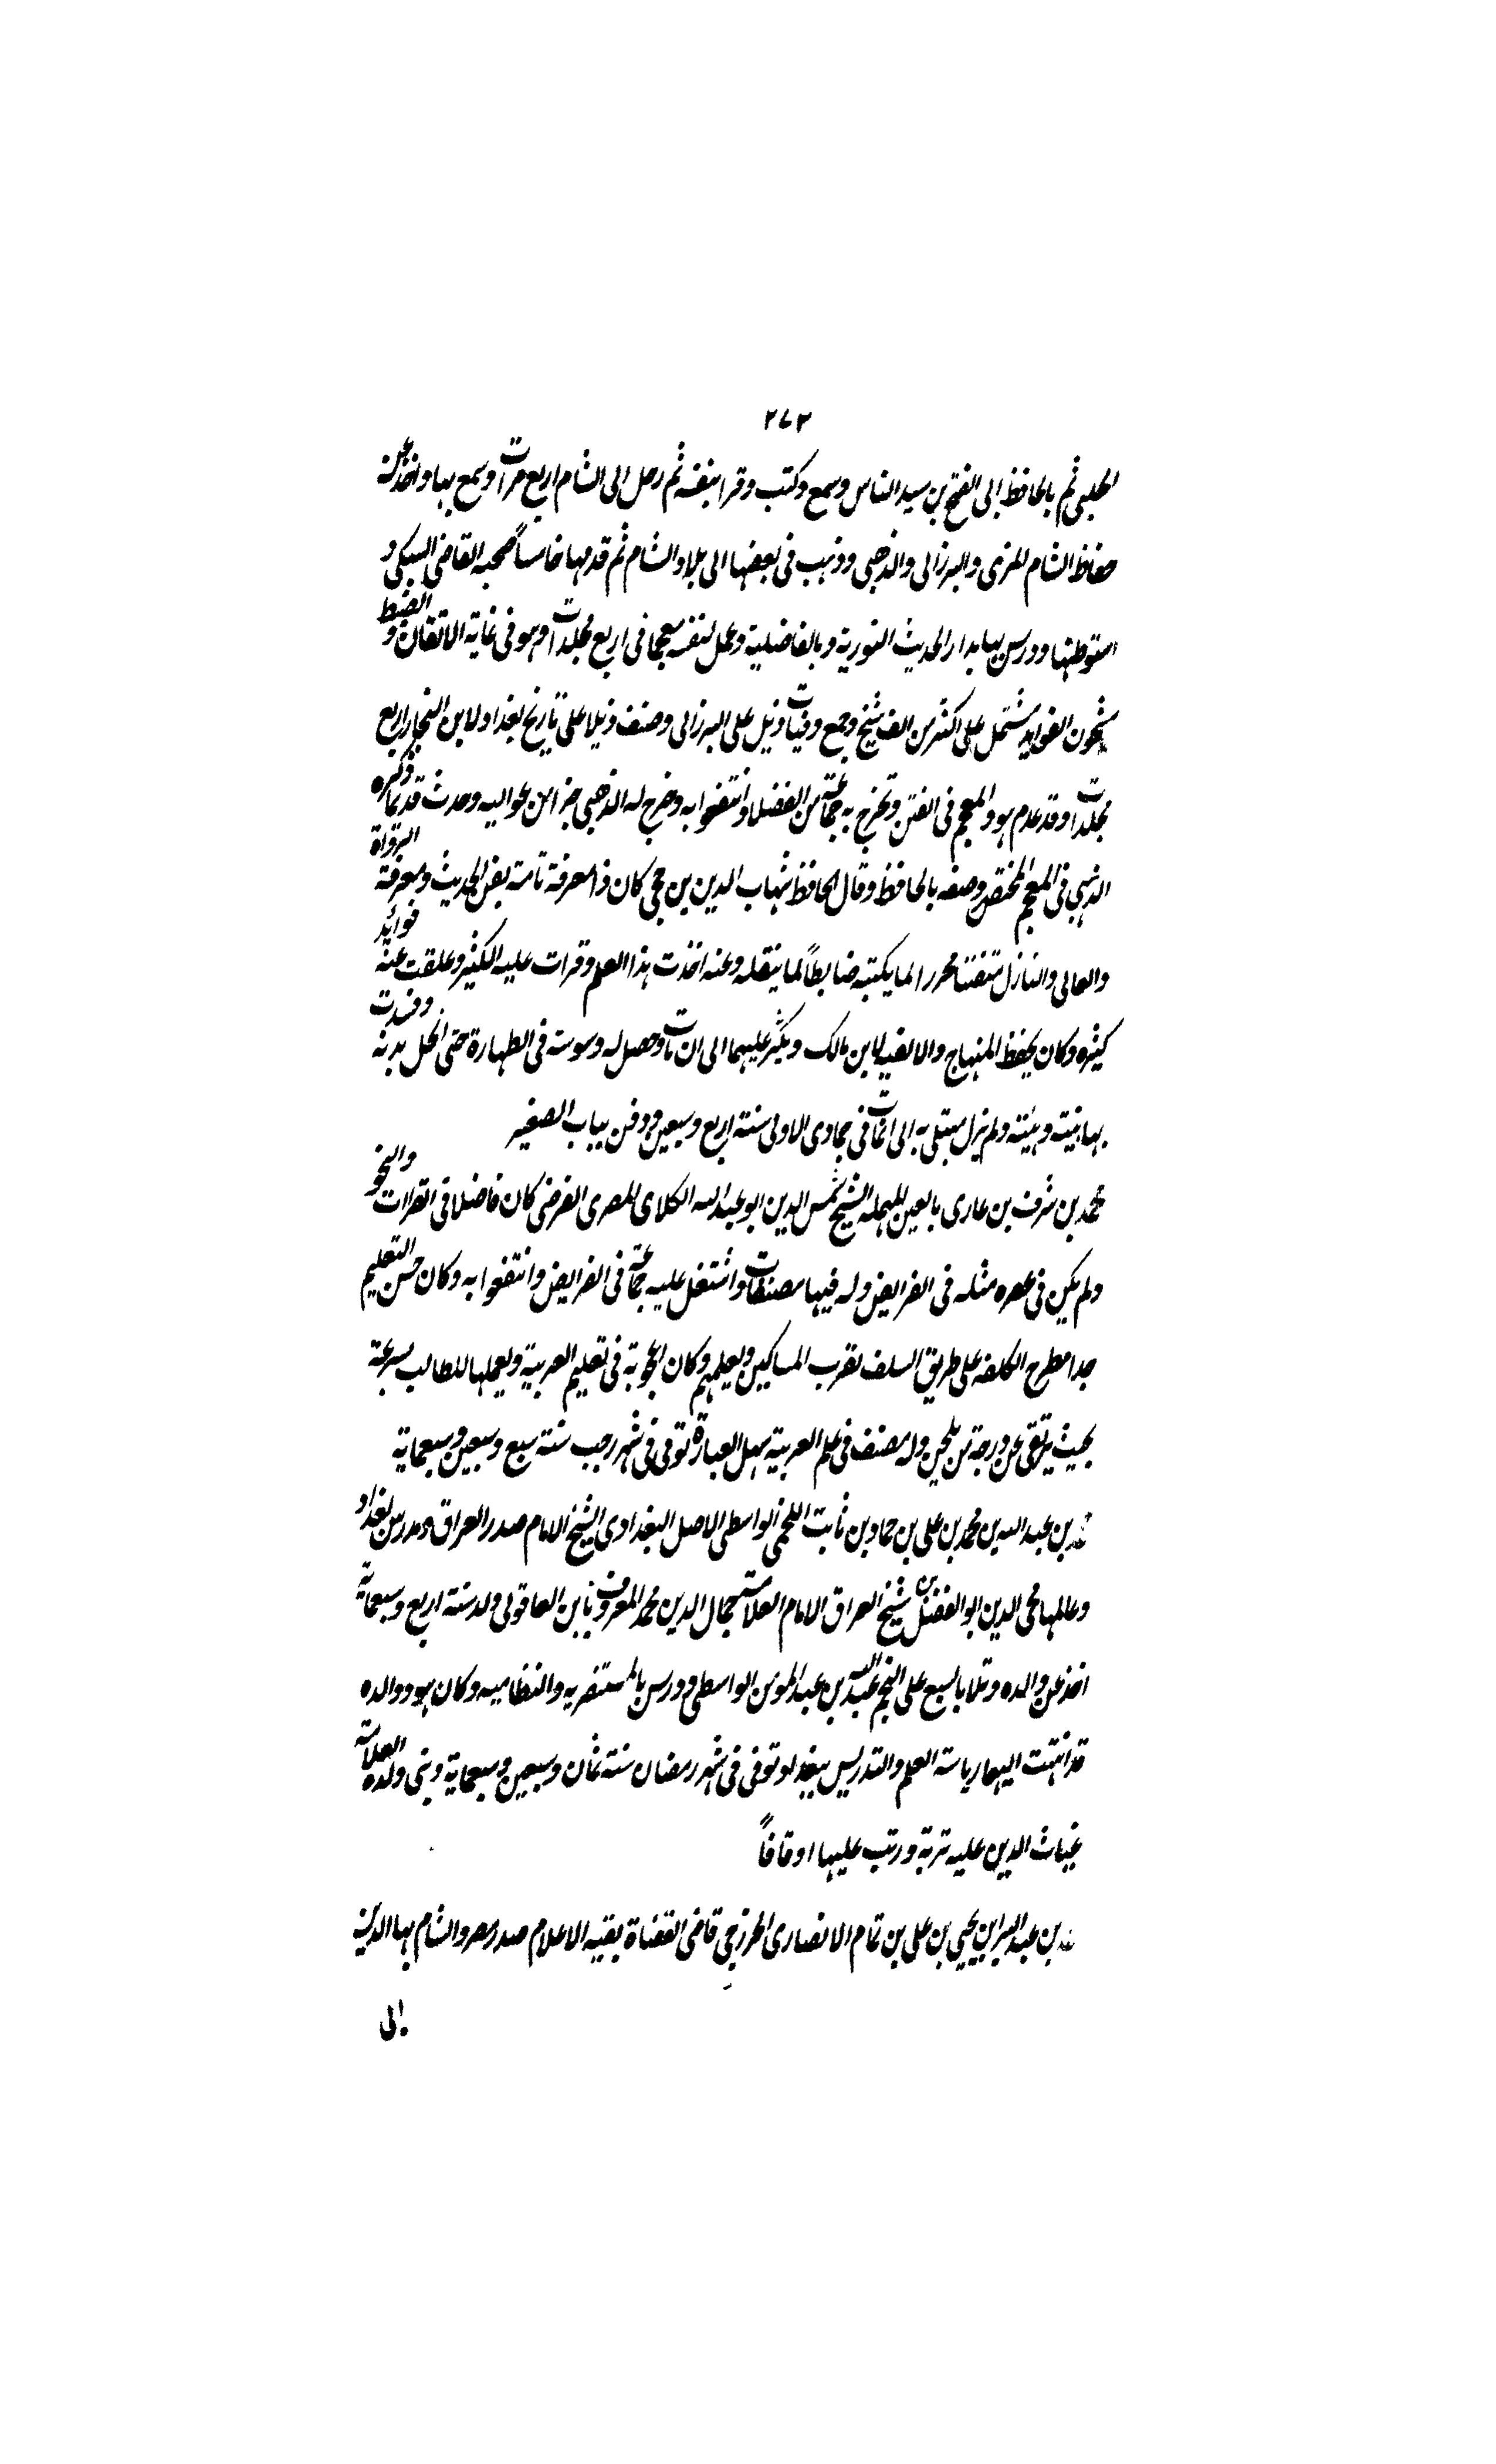 ٢٧٣
الحلبي ثم بالحافظ ابى الفتح بن سيد الناس وسمع وكتب وقرا بنفسه ثم رحل الى الشام اربع مرات وسمع بها واخذ عن
حفاظ الشام المزى والبرزالى والذهبى وذهب فى بعضها الى بلاد الشام ثم قدمها خامساً صحبه القاضى السبكى و
استوطنها ودرس بها بدار الحديث النورية وبالفاضلية وعمل لنفسه معجما فى اربع مجلدات وهو فى غاية الاتقان و الضبط
مشحون الفوايد مشتمل على اكثر من الف شيخ وجمع وفيات ذيل على البرزالى وصنف ذيلا على تاريخ بغداد لابن النجار اربع
مجلدات وقد عدم هو والمعجم فى الفتن وتخرج به جماعة من الفضلا وانتفعوا به وخرج له الذهبى جزا من عواليه وحدث قديما ذكره
الذهبي فى المعجم المختص وصفه بالحافظ وقال الحافظ شهاب الدين بن حجى كان ذا معرفة تامة بفن الحديث ومعرفة الرواة
والعالى والنازل متقنا محررا لما يكتبه ضابطاً لما ينقله وعنه اخذت هذا العلم وقرات عليه الكثير وعلقت عنه فوائد
كثيره وكان يحفظ المنهاج والالفيه لابن مالك ويكثر عليهما الى ان مات وحصل له وسوسة فى الطهارة حتى انحل بدنه وفسدت
بها نيته وهيئته ولم يزل مبتلى به الى ان مات فى جمادى الاولى سنة اربع وسبعين ودفن بباب الصغير
محمد بن شرف بن عارى بالعين المهمله الشيخ شمس الدين ابو عبد الله الكلاى المصرى الفرضى كان فاضلا فى القرات والنحو
ولم يكن فى عصره مثله فى الفرايض وله فيها مصنفات واشتغل عليه جماعة فى الفرايض وانتفعوا به وكان حسن التعليم
جدا مطرح الكلفه على طريق السلف يقرب المساكين ويعلمهم وكان اعجوبة فى تعليم العربية ويعملها للطالب بسرعة
بحيث يرتقى عن درجة من يلحن وله مصنف فى علم العربية سهل العبارة توفى فى شهر رجب سنة سبع وسبعين وسبعماية
محمد بن عبد الله بن محمد بن على بن حماد بن ثابت اللخمى الواسطى الاصل البغدادى الشيخ الامام صدر العراق ومدرس بغداد
وعالمها محى الدين ابو الفضل بن شيخ العراق الامام العلامة جمال الدين محمد المعروف بابن العاقولى ولد سنة اربع وسبعماية
اخذ عن والده وتلا بالسبع على النجم عبد الله بن عبد المومن الواسطى ودرس بالمستنصريه والنظاميه وكان هو ووالده
قد انتهت اليهما رياسة العلم والتدريس ببغداد توفى فى شهر رمضان سنة ثمان وسبعين وسبعماية وبنى ولده العلامة
غياث الدين عليه تربة ورتب عليها اوقافاً
محمد بن عبد البر ابن يحيى بن على بن تمام الانصارى الخزرجى قاضى القضاة بقيه الاعلام صدر مصر والشام بها الدين
ابى